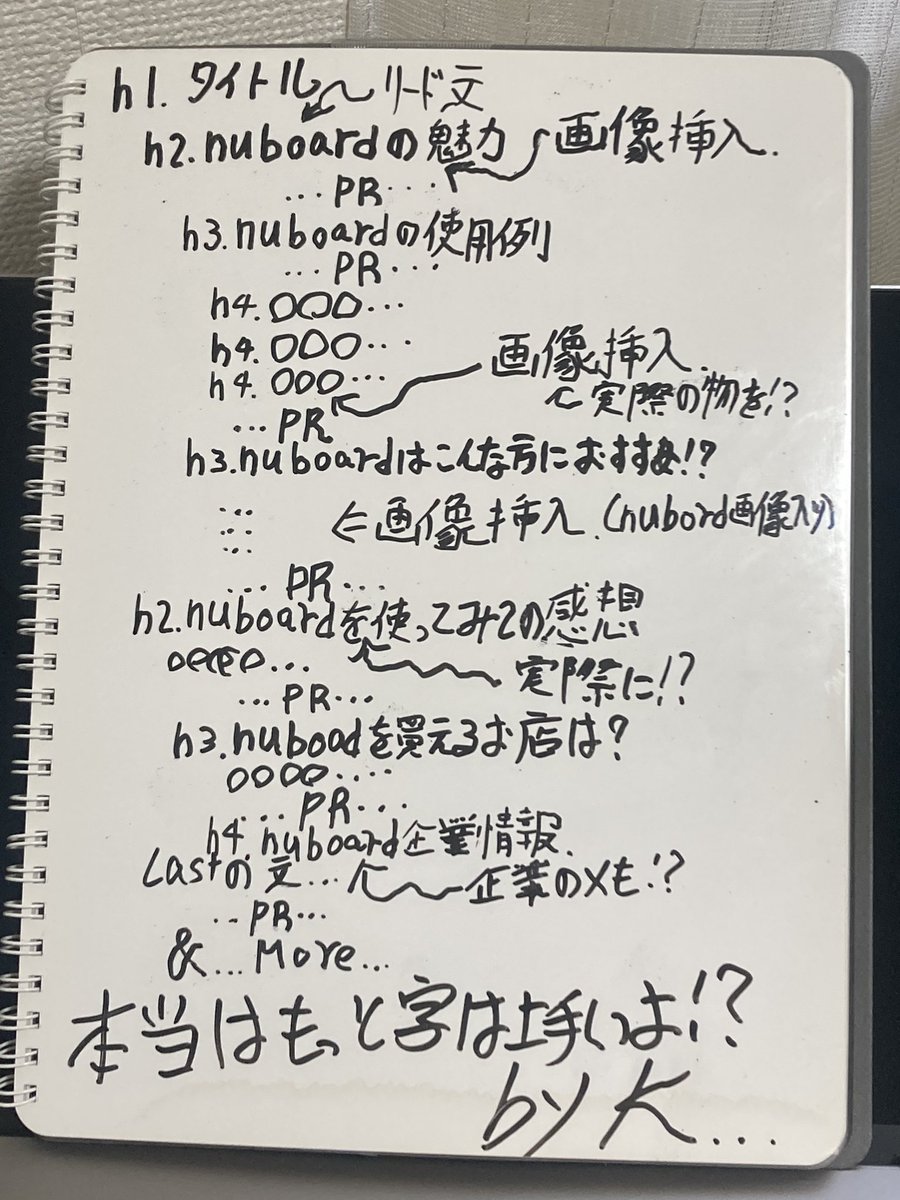 h1. タイトル ← リード文
h2. nuboardの魅力 ← 画像挿入.
...PR....
h3. nuboardの使用例
...PR...
h4. 〇〇〇...
h4. 〇〇〇...
h4. 〇〇〇...
画像挿入.
← 実際の物を!?
...PR
h3. nuboardはこんな方におすすめ!?
⇐画像挿入. (nubord画像入り)
...PR...
h2. nuboardを使ってみての感想
〇〇〇〇...
実際に!?
...PR...
h3. nuboadを買えるお店は?
〇〇〇〇....
....PR...
h4. nuboard企業情報.
Lastの文... ← 企業のメモ!?
..PR...
&...More...
本当はもっと字は上手いよ!?
by K...